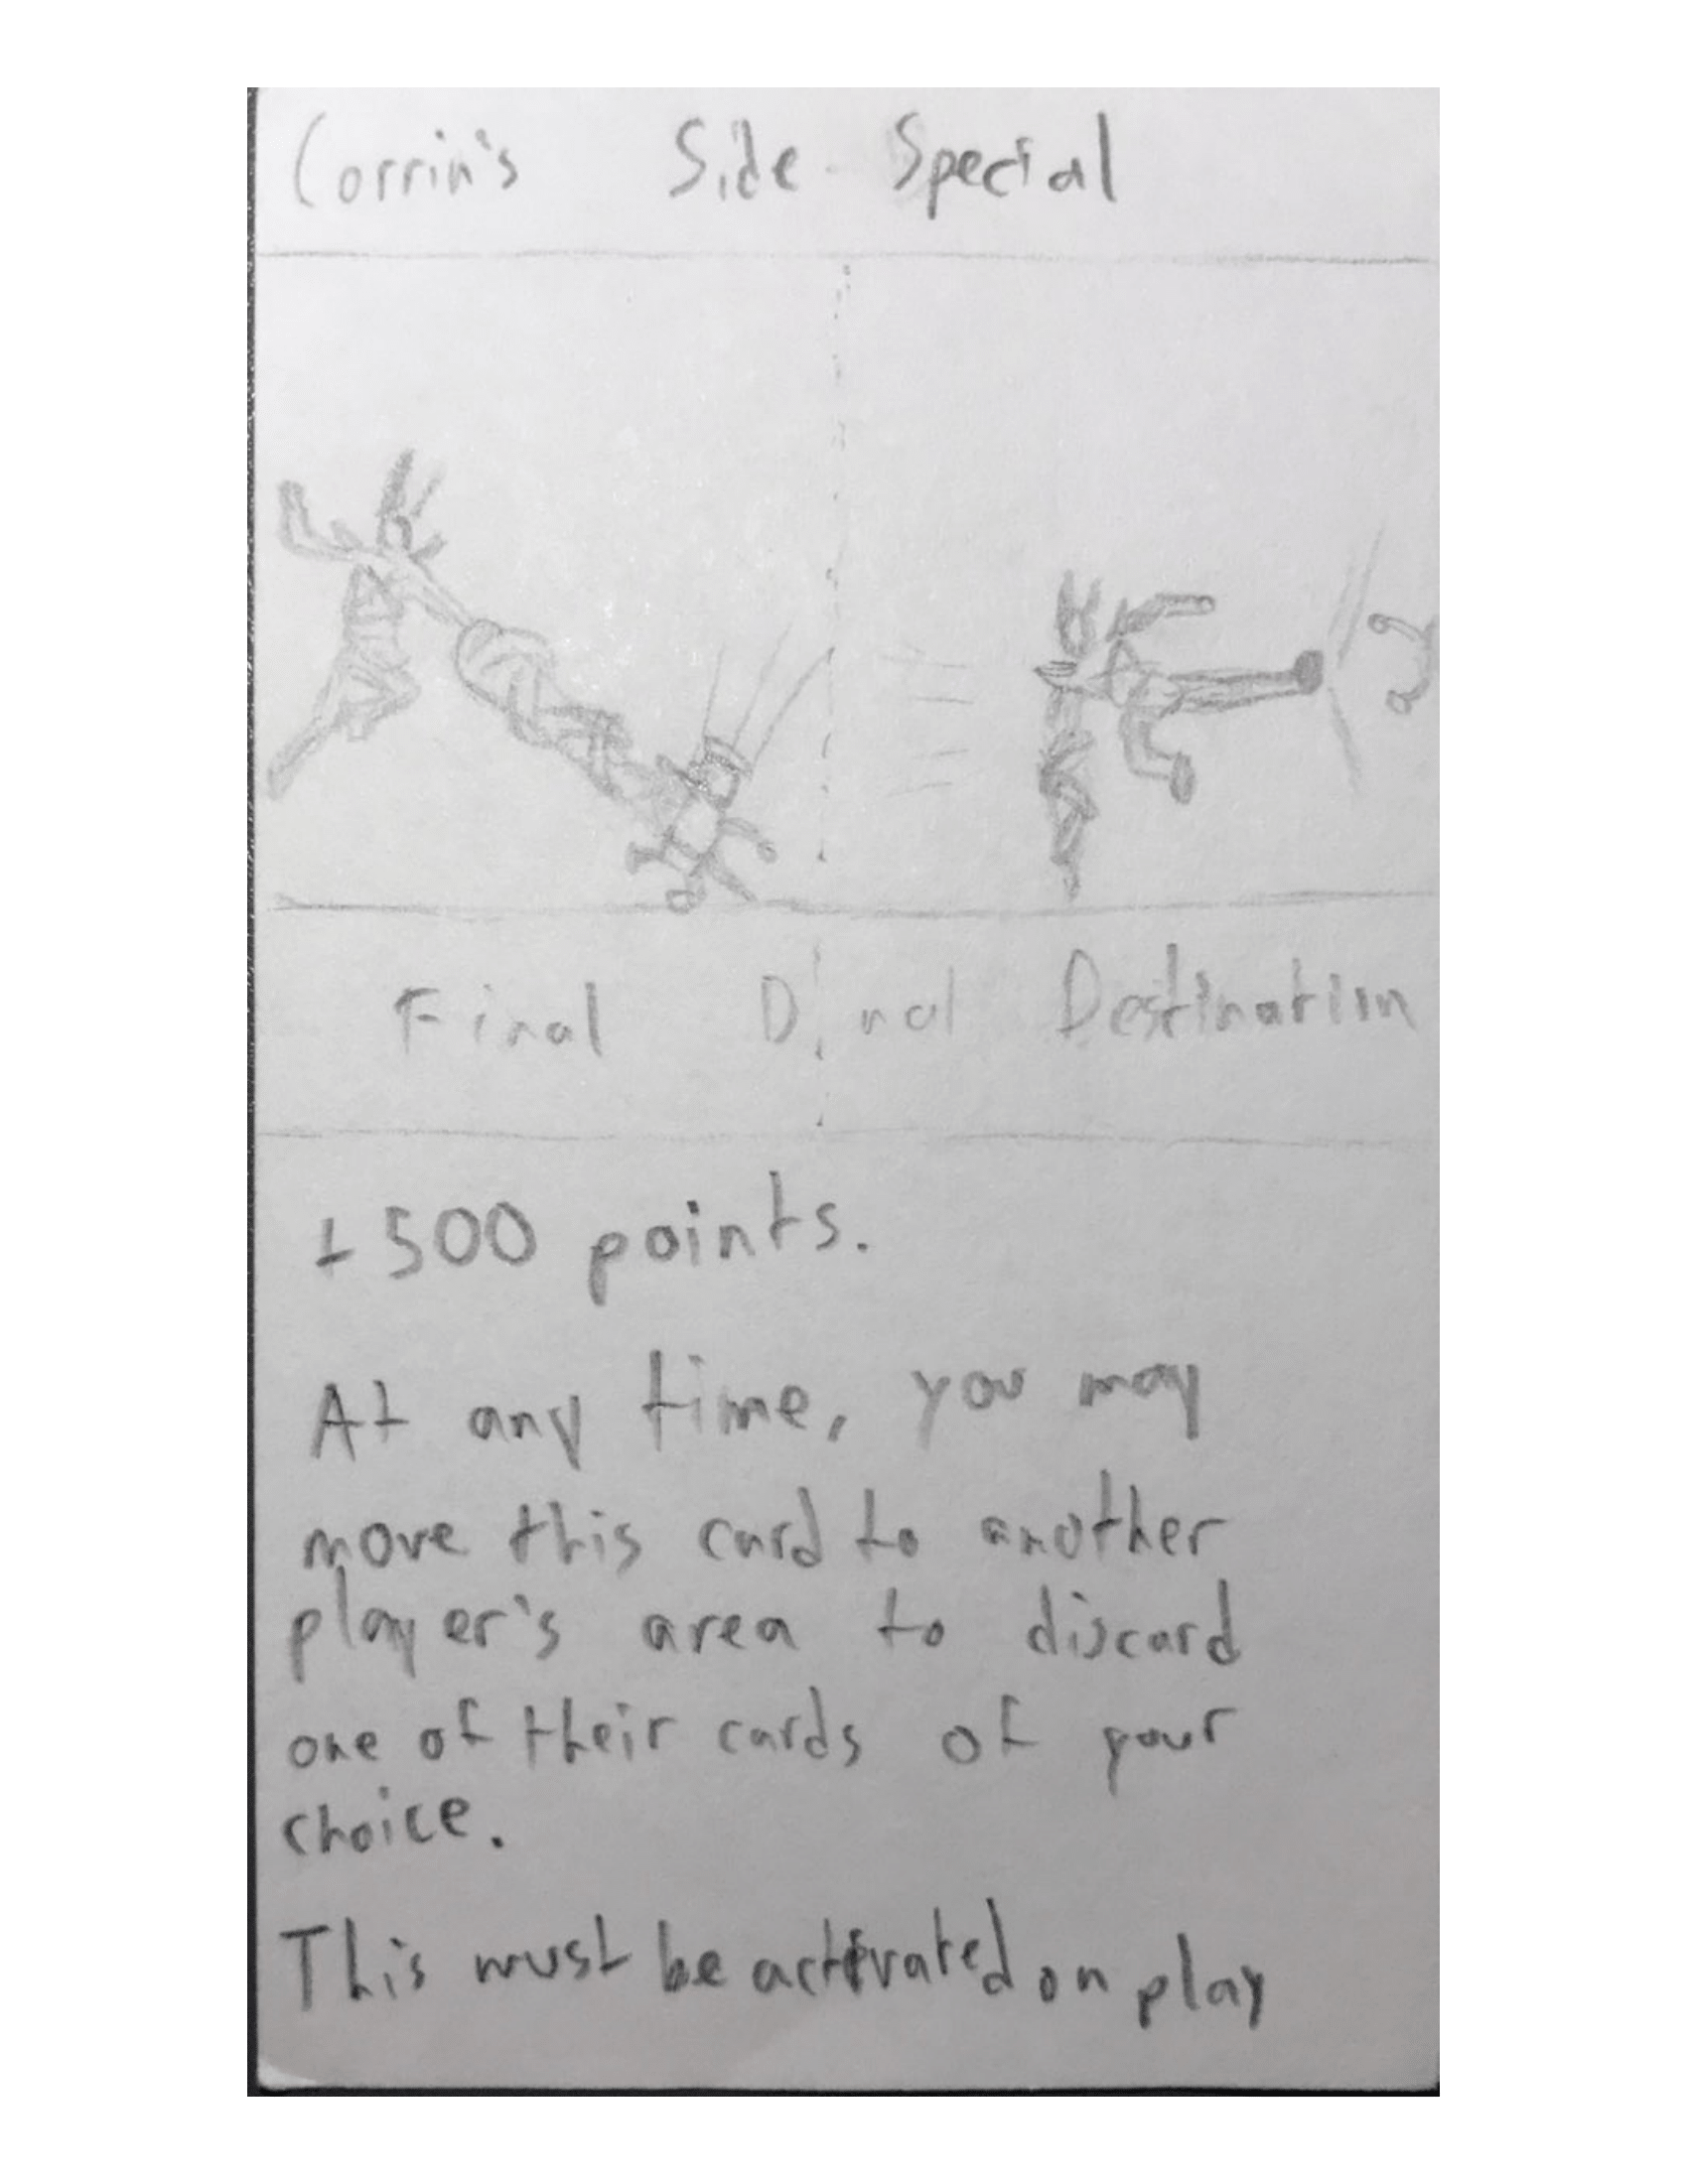 Corrin's Side Special
Final Dinal Destination
+500 points.
At any time, you may
move this card to another
player's area to discard
one of their cards of your
choice.
This must be activated on play